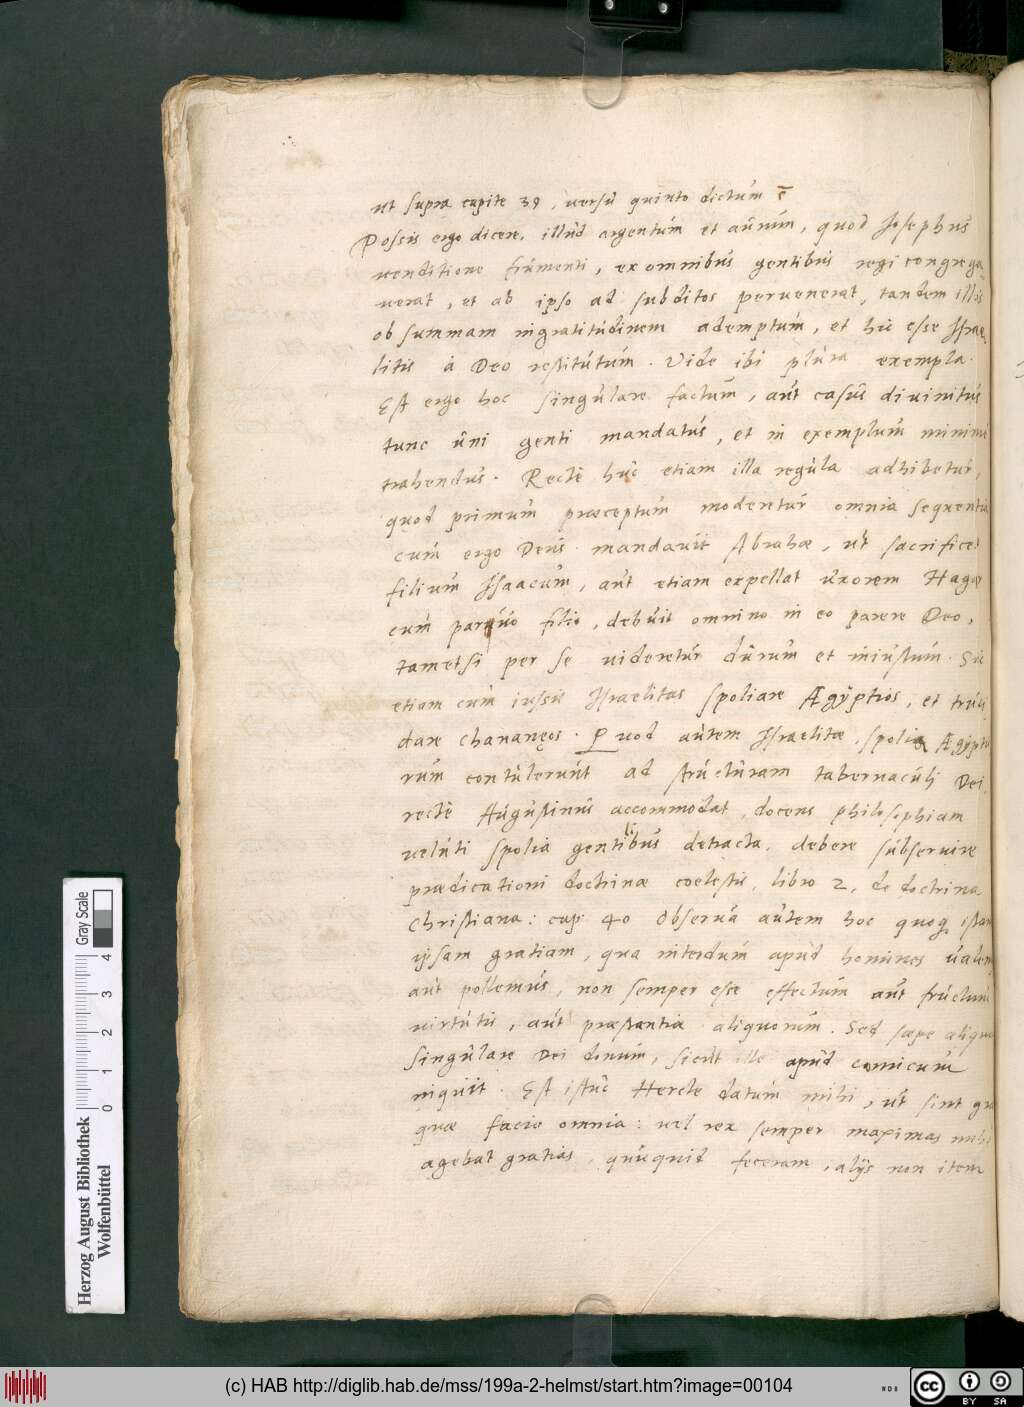 ut supra capite 39, versu quinto dictum ē
Possis ergo dicere, illud argentum et aurum, quod Josephus
venditione frumenti, ex omnibus gentibus regi congrega
verat, et ab ipso ad subditos pervenerat, tandem illis
ob summam ingratitudinem ademptum, et hic esse Israe
litis à Deo restitutum. Vide ibi plura exempla.
Est ergo hoc singulare factum, aut casus divinitus
tunc uni genti mandatus, et in exemplum minimè
trahendus. Rectè huc etiam illa regula adhibetur,
quod primum præceptum moderetur omnia sequentia
cum ergo Deus mandavit Abrahæ, ut sacrificet
filium Isaacum, aut etiam expellat uxorem Hagar
cum parvuo filio, debuit omnino in eo parere Deo,
tametsi per se videretur durum et iniustum. Sic
etiam cum iussit Israelitas spoliare Ægÿptios, et truci
dare Chananęos. Quod autem Israelitæ spolia Ægÿptio
rum contulerunt ad structuram tabernaculj Dei,
rectè Augustinus accommodat, docens philosophiam
veluti spolia gentilibus detracta, debere subservire
prædicationi doctrinæ coelestis, libro 2, de doctrina
Christiana: cap: 40 Observa autem hoc quoq; istam
ipsam gratiam, qua interdum apud homines valem
aut pollemus, non semper esse effectum aut fructum
virtutis, aut præstantiæ aliquorum. Sed sæpe aliquod
singulare Dei donum, sicut ille apud comicum
inquit. Est istuc Hercle datum mihi, ut sint gra
quæ facio omnia: vel rex semper maximas mihi
agebat gratias, quicquid feceram, alijs non item
Gray Scale
0 1 2 3 4
Herzog August Bibliothek
Wolfenbüttel
(c) HAB http://diglib.hab.de/mss/199a-2-helmst/start.htm?image=00104
cc BY SA